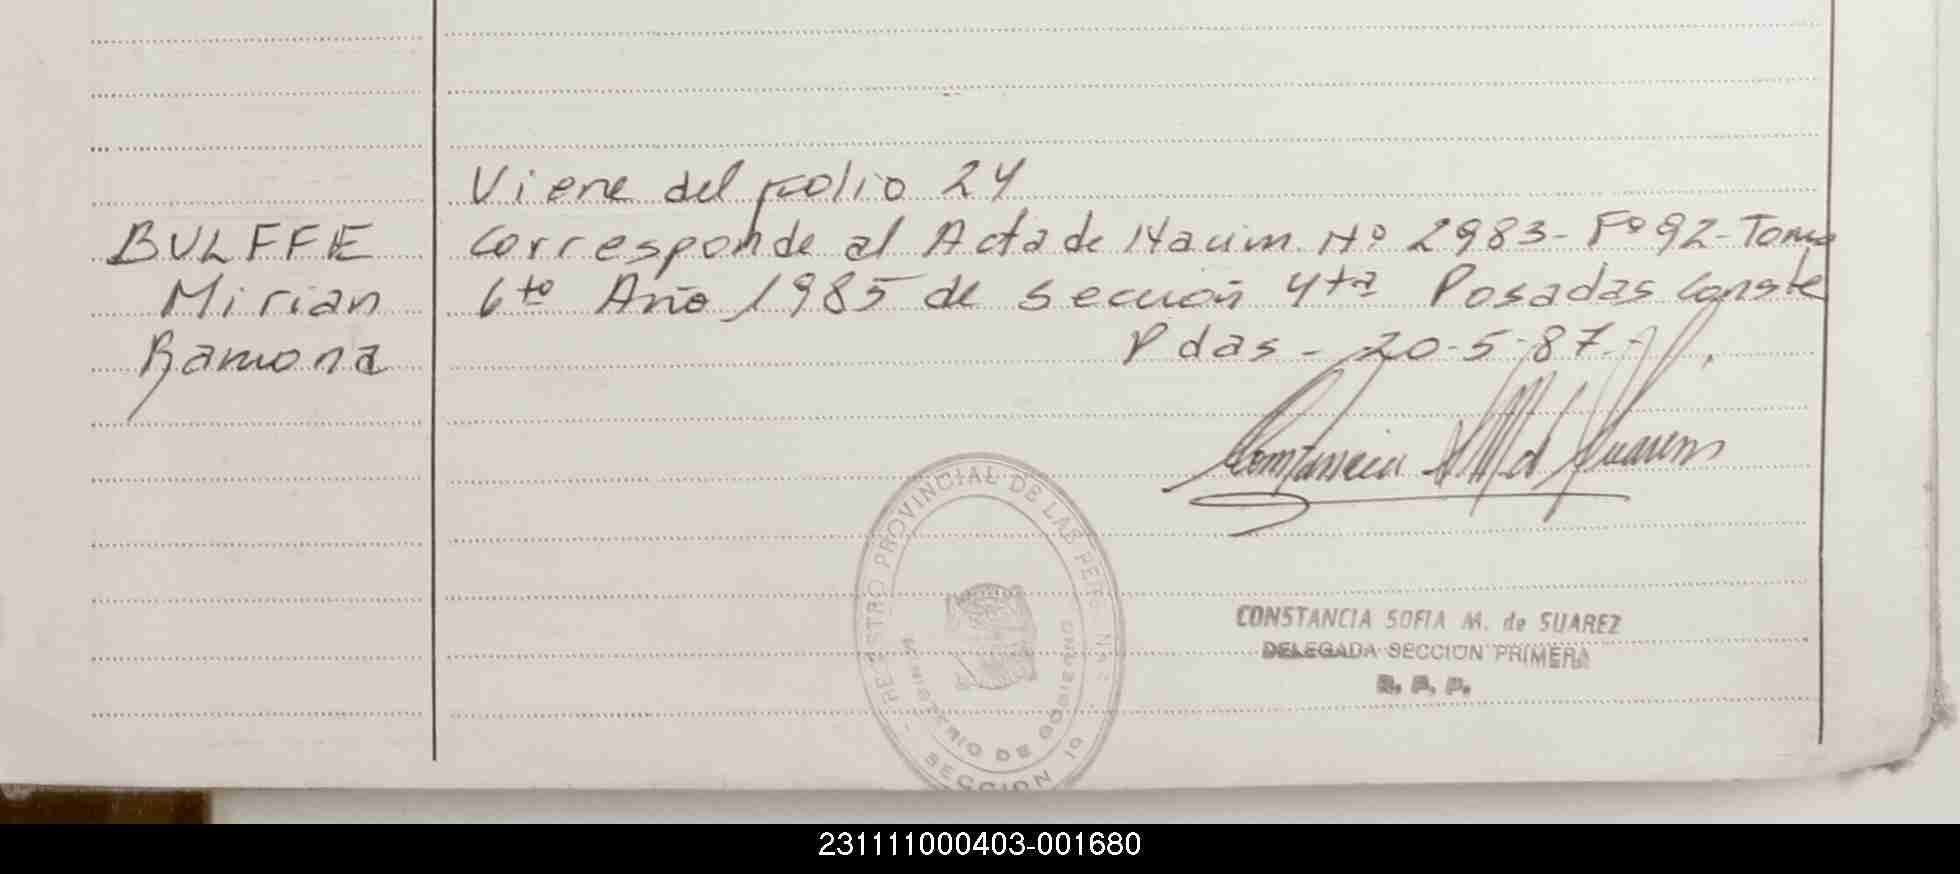 Viene del folio 24
BULFFE corresponde al Acta de Nacim. Nº 2983- Fº 92- Tomo
Mirian 6to Año 1985 de sección 4ta Posadas Conste
Ramona Pdas - 20-5-87.-
Constancia S M de Suarez
REGISTRO PROVINCIAL DE LAS PERS
MINISTERIO DE GOBIERNO
SECCION 1º
CONSTANCIA SOFIA M. de SUAREZ
DELEGADA SECCION PRIMERA
R. P. P.
231111000403-001680